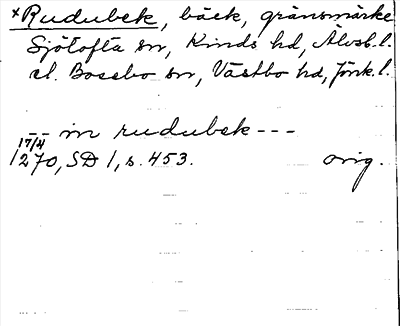 ×Rudubek, bäck, gränsmärke
Sjötofta sn, Kinds hd, Älvsb.l.
el. Bosebo sn, Västbo hd, Jönk.l.
-- in rudubek ---
17/4
1270, SD 1, s. 453. orig.